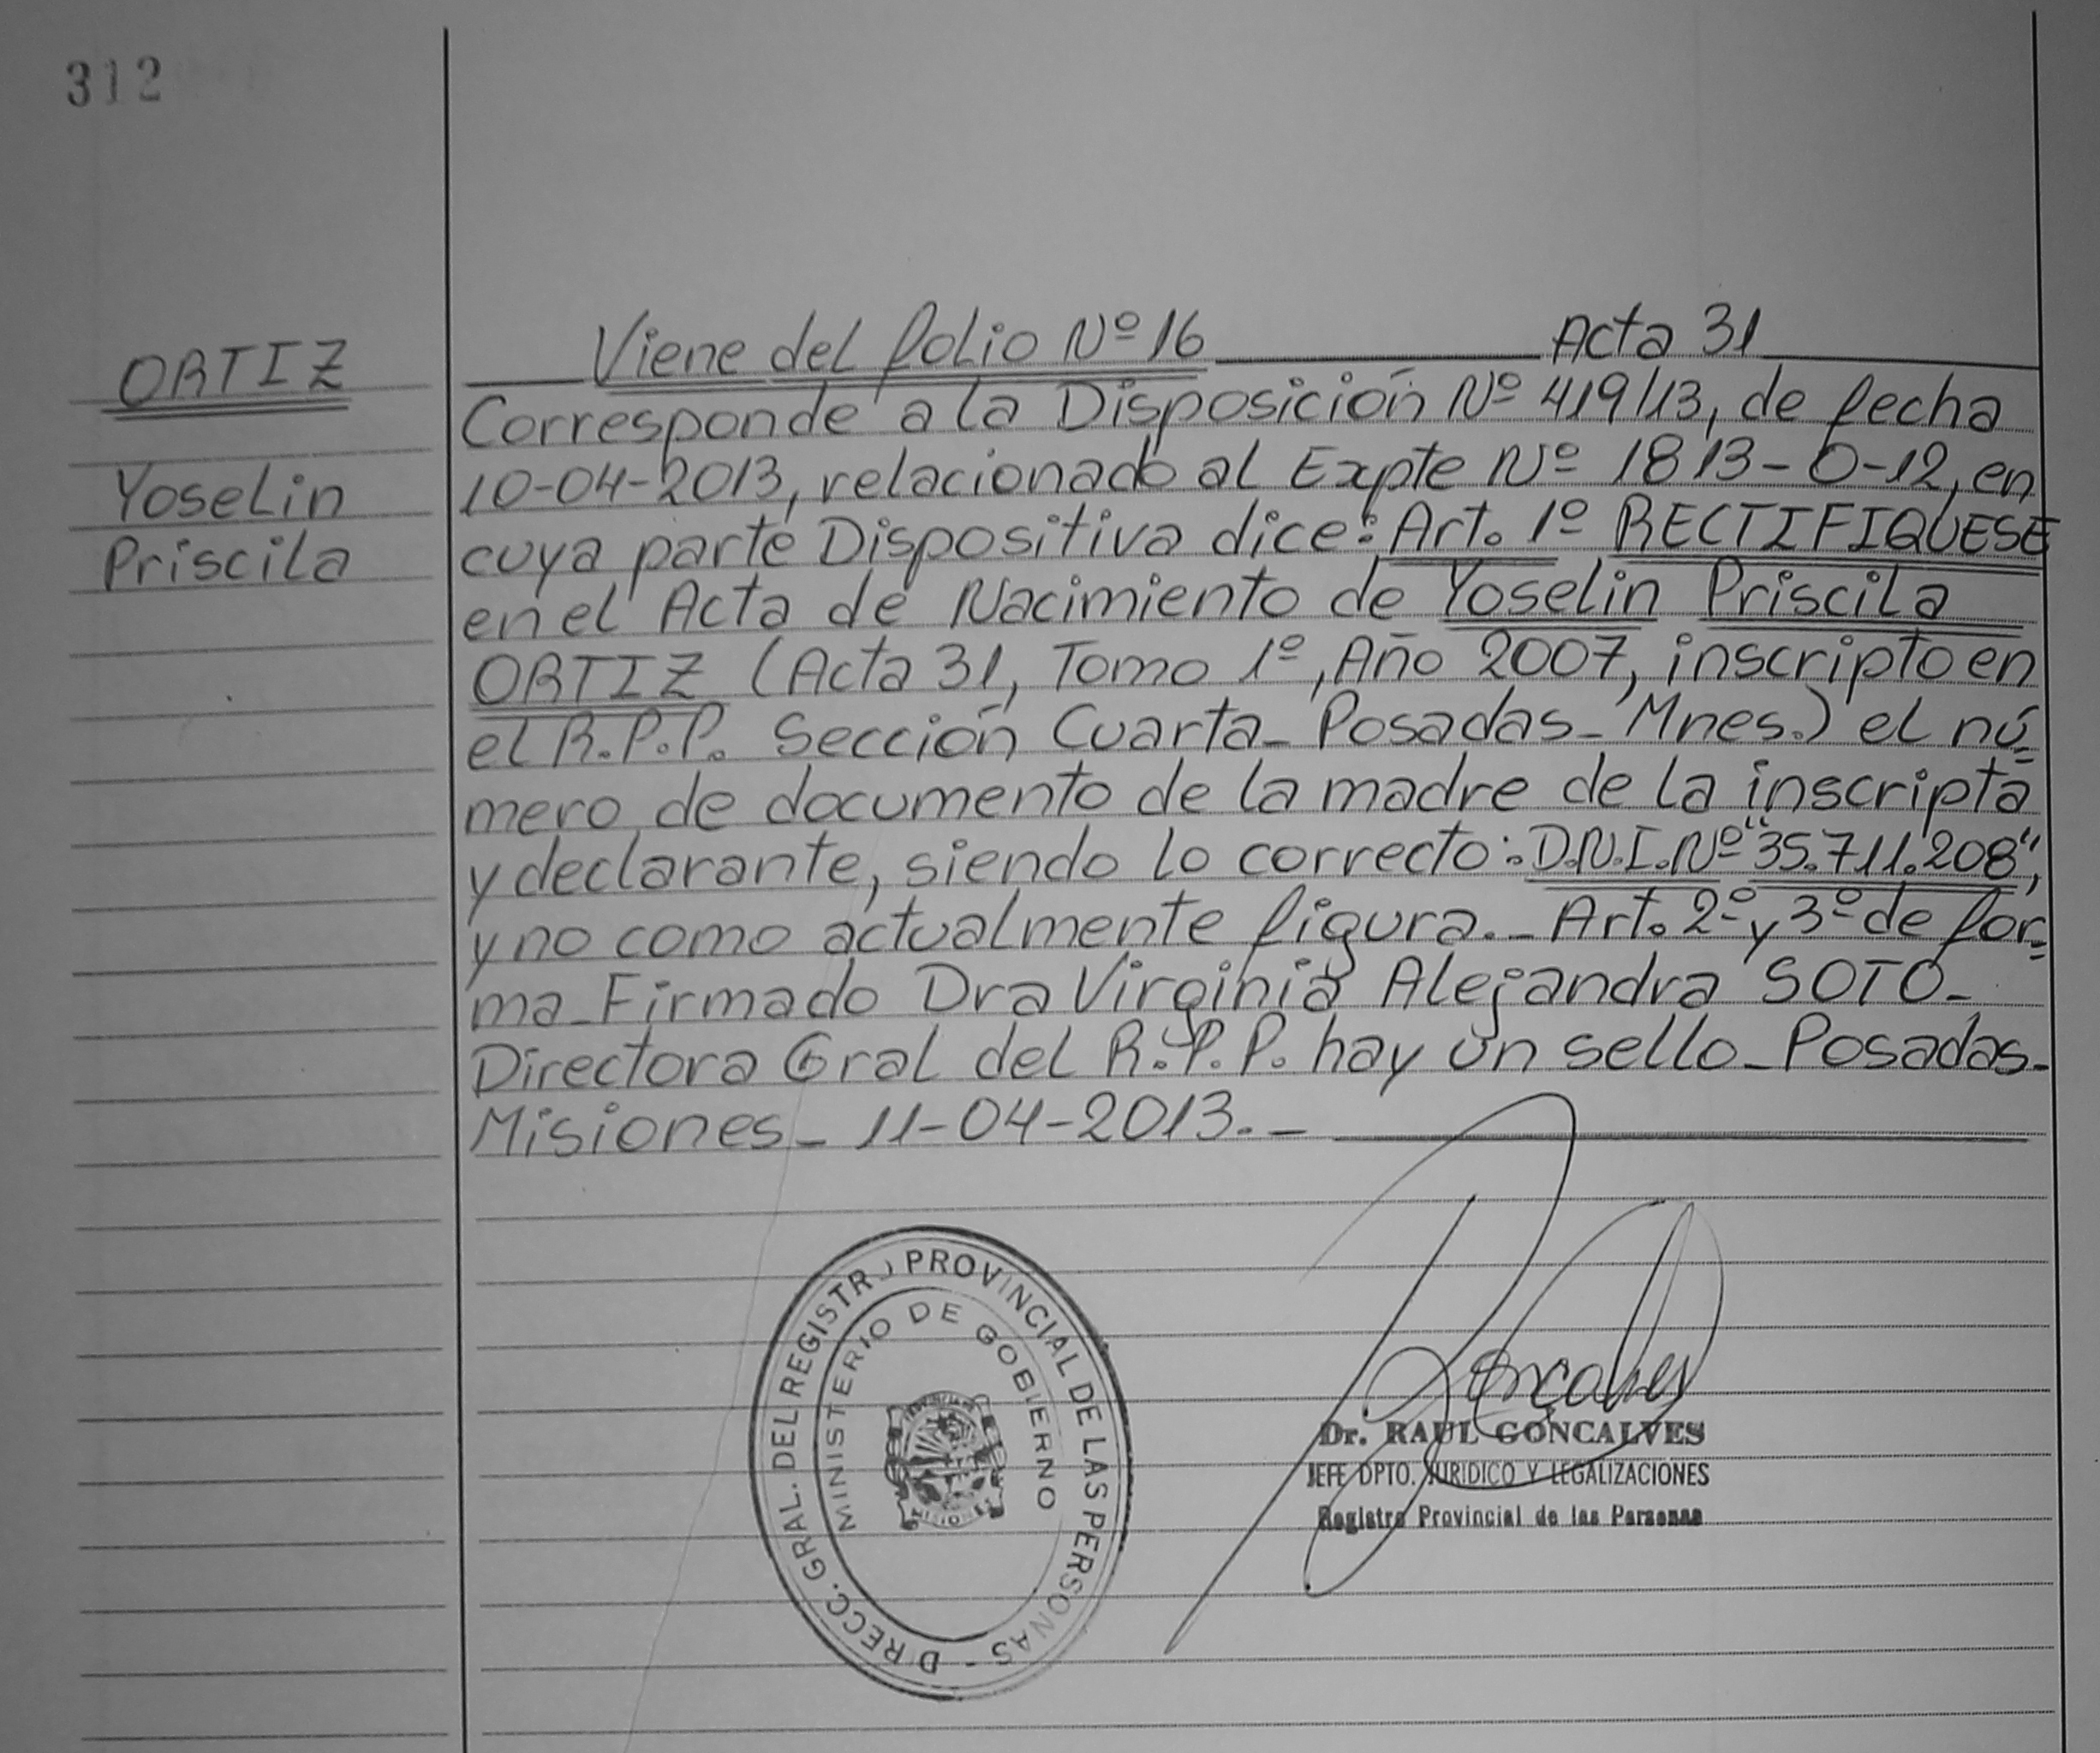 312
ORTIZ
Yoselin
Priscila
Viene del folio Nº 16 Acta 31
Corresponde a la Disposición Nº 419/13, de fecha
10-04-2013, relacionado al Expte Nº 1813-O-12, en
cuya parte Dispositiva dice: Art. 1º RECTIFIQUESE
en el Acta de Nacimiento de Yoselin Priscila
ORTIZ (Acta 31, Tomo 1º, Año 2007, inscripto en
el R.P.P. Sección Cuarta_ Posadas_ Mnes.) el nú=
mero de documento de la madre de la inscripta
y declarante, siendo lo correcto: D.N.I. Nº "35.711.208",
y no como actualmente figura._ Art. 2º y 3º de for=
ma_ Firmado Dra Virginia Alejandra SOTO_
Directora Gral del R.P.P. hay un sello_ Posadas_
Misiones_ 11-04-2013._
DIRECC. GRAL. DEL REGISTRO PROVINCIAL DE LAS PERSONAS -
MINISTERIO DE GOBIERNO
MISIONES
Goncalves
Dr. RAUL GONCALVES
JEFE DPTO. JURIDICO Y LEGALIZACIONES
Registro Provincial de las Personas